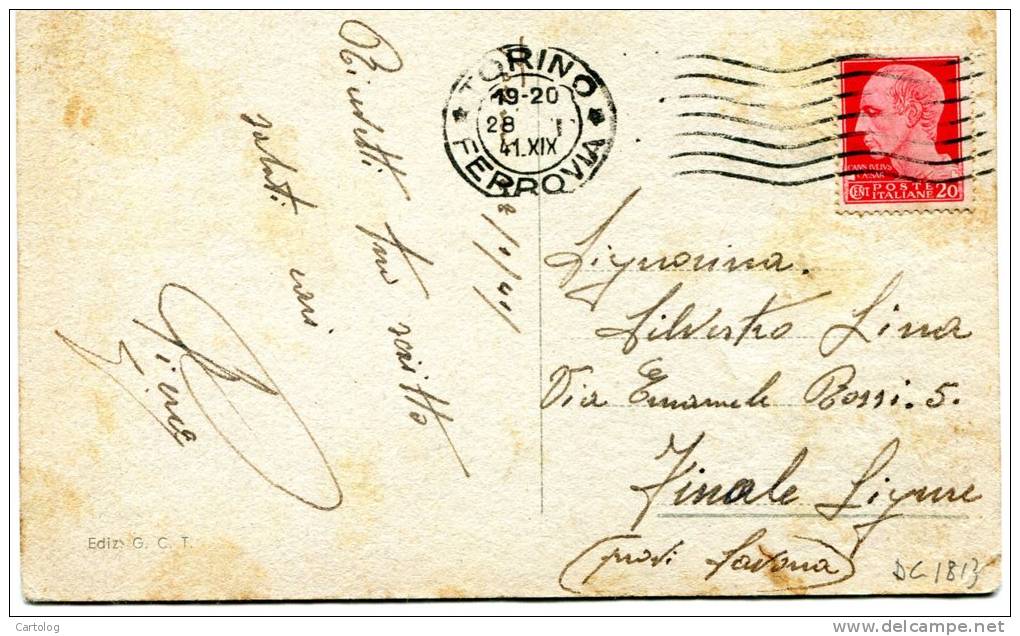 TORINO
19-20
28 I
41.XIX
FERROVIA
CAIVS IVLIVS
CAESAR
CENT POSTE 20
ITALIANE
28/1/41
scritto
saluti cari
Signorina.
Silvestro Lina
Via Emanuele Rossi. 5.
Finale Ligure
(prov. Savona)
Ediz. G. C. T.
DC 1813
Cartolog
www.delcampe.net